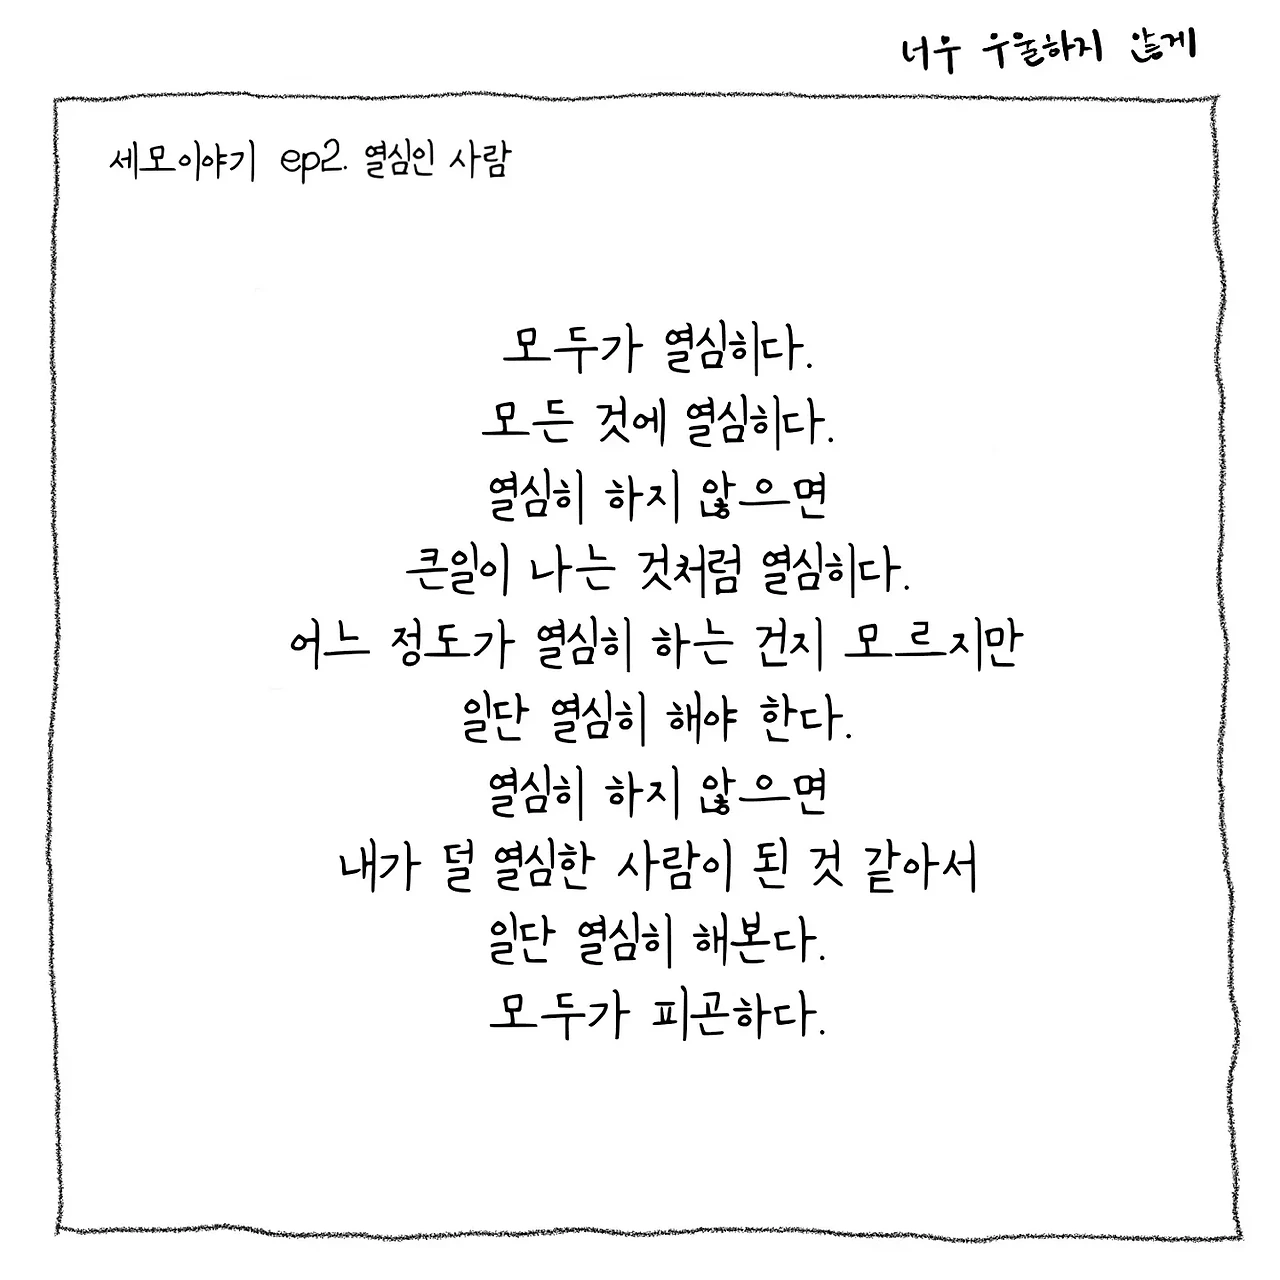 너우 우울하지 않게
세모이야기 ep2. 열심인 사람
모두가 열심히다.
모든 것에 열심히다.
열심히 하지 않으면
큰일이 나는 것처럼 열심히다.
어느 정도가 열심히 하는 건지 모르지만
일단 열심히 해야 한다.
열심히 하지 않으면
내가 덜 열심한 사람이 된 것 같아서
일단 열심히 해본다.
모두가 피곤하다.